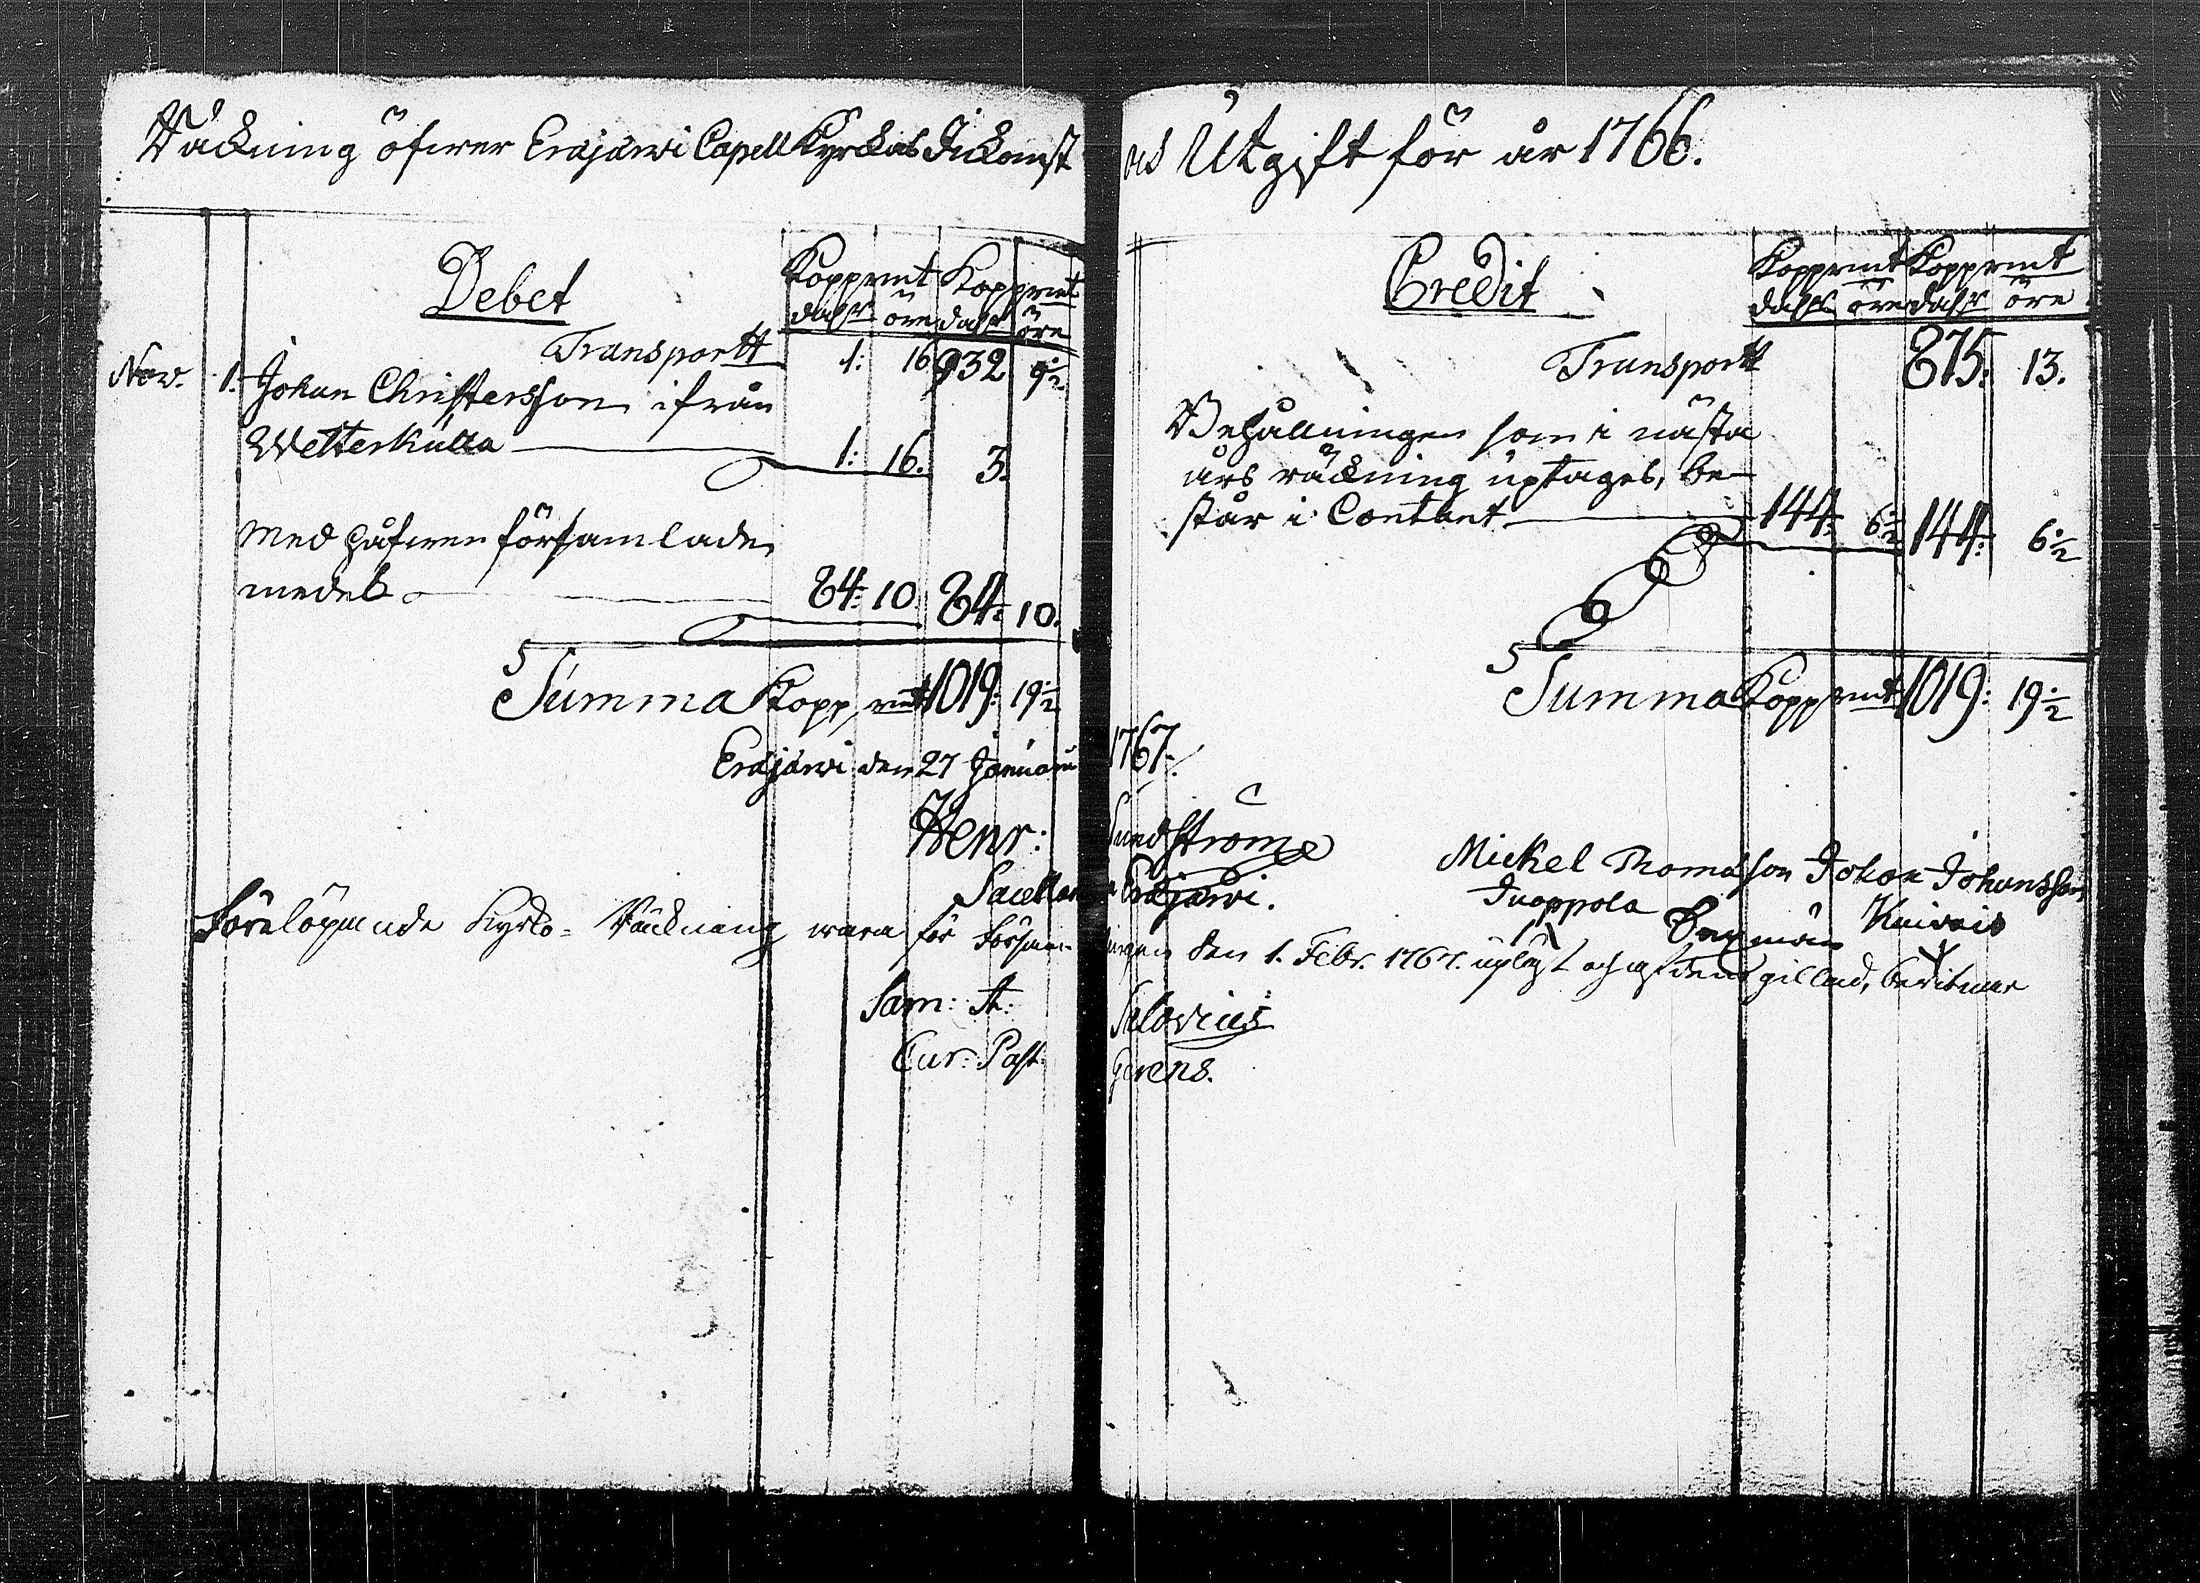 Räckning öfwer Eräjärwi Capell Kyrckas Inkomst
och Utgift för år 1766.
Debet
Kopp rmt Kopp rmt
dahlr öre dahlr öre
Transportt 1: 16 932 9½
Nov. 1. Johan Christersson ifrån
Wetterkulla 1: 16. 3.
Med håfwen församlade
medel 84: 10. 84: 10.
Summa Kopp rmt 1019: 19½
Credit
Kopp rmt Kopp rmt
dahlr öre dahlr öre
Transportt 875: 13.
Behållningen som i nästa
års räckning uptages, be-
står i Contant 144: 6½ 144: 6½
Summa Kopp rmt 1019: 19½
Eräjärwi den 27 Januarii 1767.
Henr: Sundström
Sacellan Eräjärwi.
Mickel Thomasson Johan Johansson
Juoppola
Föreløpande Kyrko-Räckning wara för Försam-
lingen den 1. Febr. 1767. upläst och af dem gillad, bewitnar
Sam: A: Salovius
Cur: Past. Gerens.